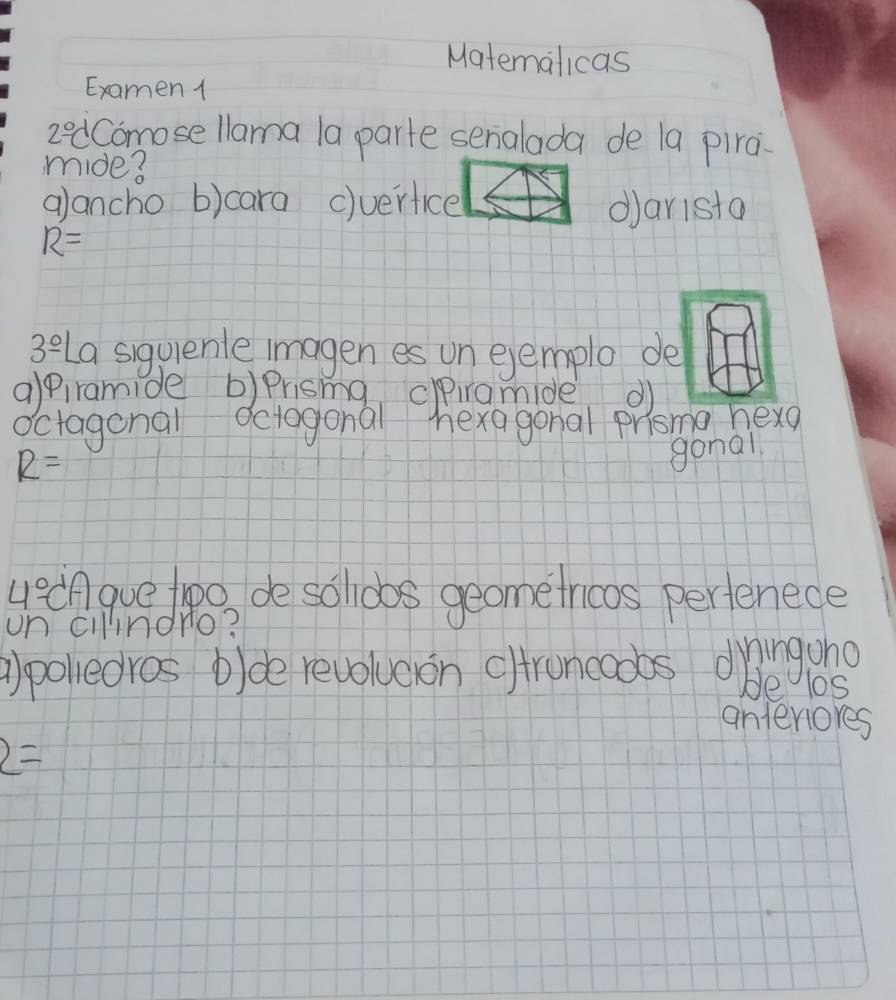 Matemáticas
Examen 1
2º¿Cómo se llama la parte señalada de la pirá-
mide?
a)ancho b)cara c)vértice d)arista
R=
3ºLa siguiente imagen es un ejemplo de
a)Piramide b)Prisma c)Piramide d)
octagonal octogonal hexagonal prisma hexa
gonal.
R=
4º¿A que tipo de sólidos geométricos pertenece
un cilindro?
a)poliedros b)de revolución c)truncados d)ninguno
de los
anteriores
R=